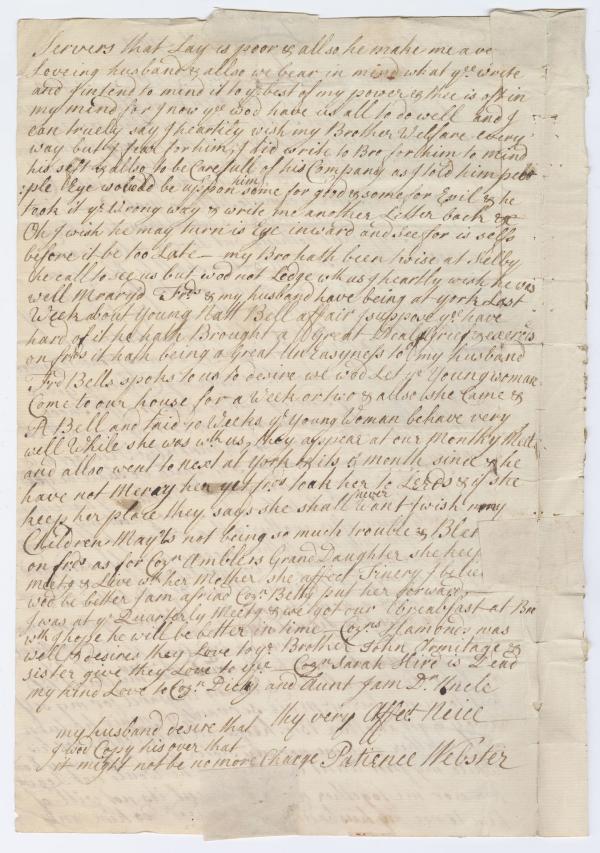 Servers that Lay is poor & allso he make me a ve
Loveing husband & allso we bear in mind what ye write
and I intend to mind it to ye best of my power & thee is oft in
my mind for I now ye wod have us all to do well and I
can truely say I heartily wish my Brother Welfare every
way but I fear for him, I did write to Bro for him to mind
his self & allso to be Carefull of his Company as I told him peo
:ple Eye would be uppon him some for good & some for Evil & he
took it ye Wrong way & write me another Letter back &
Oh I wish he may turn is Eye inward and See for is self
before it be too Late — my Bro hath been twice at Selby
he call to see us but wod not Lodge wth us I heartly wish he was
well Meary'd Frds & my husband have being at york Last
Week about Young Bell affair I suppose ye have
hard of it he hath Brought a Great deal Grief & exercis
on frds it hath being a Great UnEasyness to my husband
Frd Bells spoke to us to desire we wod Let ye Young woman
Come to our house for a Week or two & allso she Came &
A Bell and said 10 Weeks ye Young Woman behave very
well While she was wth us, they appear at our Monthly Meet
and allso went to next at York & its month since & he
have not Meray her yet frds took her to Leeds & if she
keep her place they says she shall never want I wish my
Children May is not being so much trouble &
on frds as for Cozn Amblers Grand Daughter she keep
meetg & Live wth her Mother she affect Finery I belie
wod be better I am afriad Cozn Betty put her forward
I was at ye Quarterly Meetg & we got our breakfast at Bro
wth I hope he will be better in time Cozns was
well & desires they Love to ye Brother John Armitage &
sister give they Love to ye Cozn Sarah Hird is Dead
my kind Love to Cozn Dicky and Aunt I am Dr Uncle
my husband desire that thy very Affect Neice
I wod Copy his over that
it might not be no more Charge Patience Webster